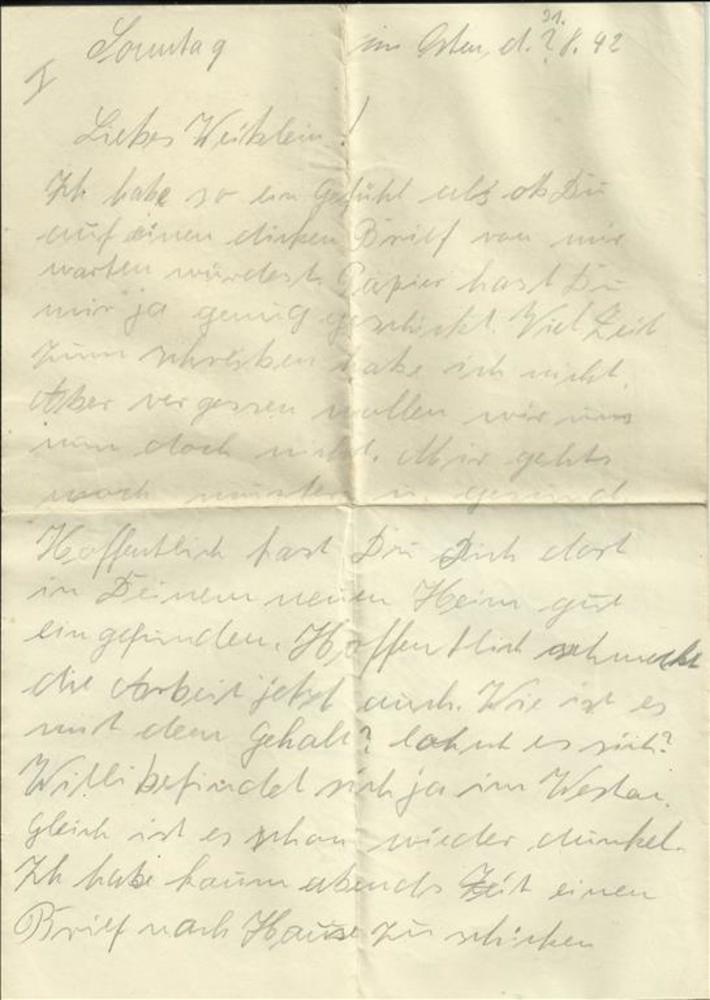 Sonntag im Osten, d. 31. ? 8. 42
I
Liebes Weiblein!
Ich habe so ein Gefühl als ob Du
auf einen dicken Brief von mir
warten würdest. Papier hast Du
mir ja genug geschickt. Viel Zeit
zum schreiben habe ich nicht.
Aber vergessen wollen wir uns
nun doch nicht. Mir gehts
noch munter u. gesund
Hoffentlich hast Du Dich dort
in Deinem neuen Heim gut
eingefunden. Hoffentlich schmeckt
die Arbeit jetzt auch. Wie ist es
mit dem Gehalt? lohnt es sich?
Willi befindet sich ja im Westen.
Gleich ist es schon wieder dunkel.
Ich habe kaum abends Zeit einen
Brief nach Hause zu schicken